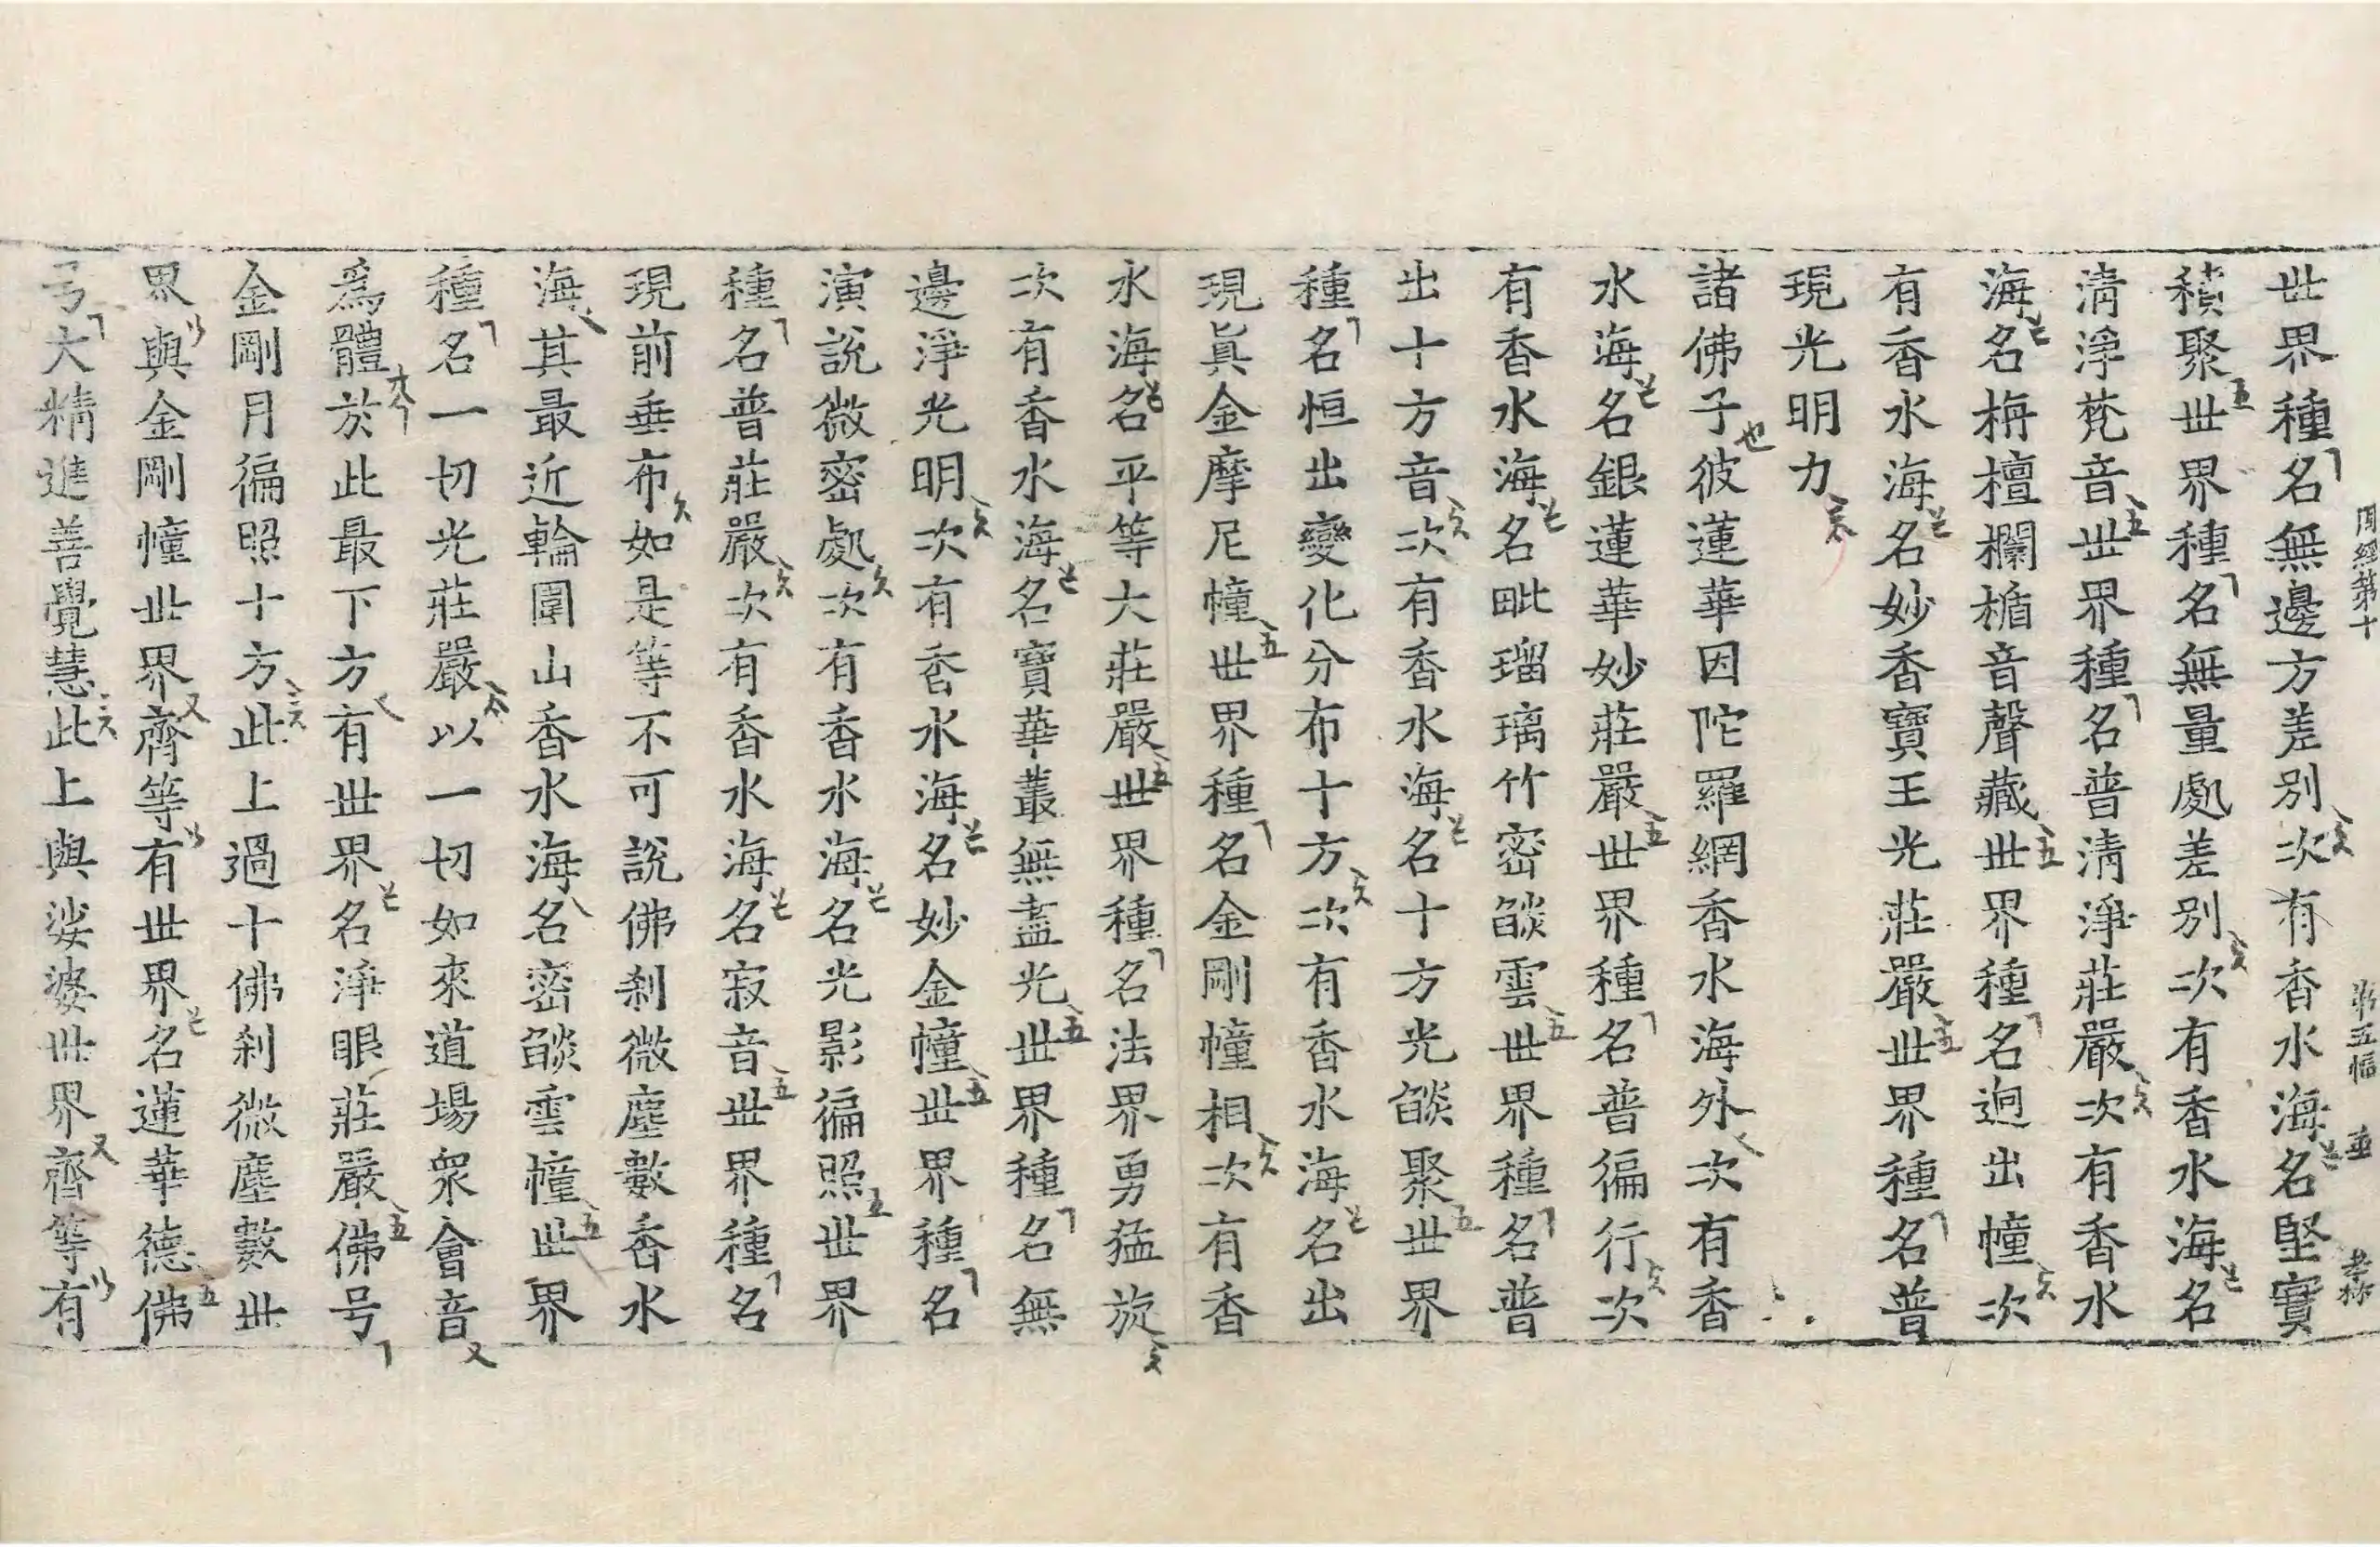 周經第十 第五幅
世界種名無邊方差別次有香水海名堅實
積聚世界種名無量處差別次有香水海名
清淨梵音世界種名普清淨莊嚴次有香水
海名栴檀欄楯音聲藏世界種名迥出幢次
有香水海名妙香寶王光莊嚴世界種名普
現光明力
諸佛子彼蓮華因陀羅網香水海外次有香
水海名銀蓮華妙莊嚴世界種名普徧行次
有香水海名毗瑠璃竹密燄雲世界種名普
出十方音次有香水海名十方光燄聚世界
種名恒出變化分布十方次有香水海名出
現眞金摩尼幢世界種名金剛幢相次有香
水海名平等大莊嚴世界種名法界勇猛旋
次有香水海名寶華叢無盡光世界種名無
邊淨光明次有香水海名妙金幢世界種名
演說微密處次有香水海名光影徧照世界
種名普莊嚴次有香水海名寂音世界種名
現前垂布如是等不可說佛刹微塵數香水
海其最近輪圍山香水海名密燄雲幢世界
種名一切光莊嚴以一切如來道場衆會音
爲體於此最下方有世界名淨眼莊嚴佛号
金剛月徧照十方此上過十佛刹微塵數世
界與金剛幢世界齊等有世界名蓮華德佛
号大精進善覺慧此上與娑婆世界齊等有